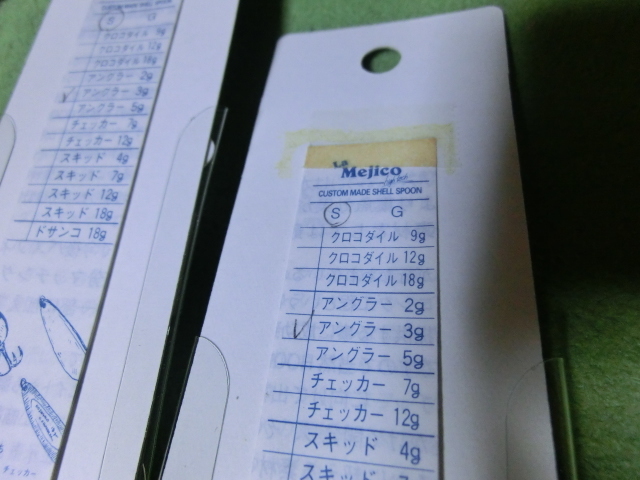 CUSTOM MADE SHELL SPOON
S G
クロコダイル 9g
クロコダイル 12g
クロコダイル 18g
アングラー 2g
アングラー 3g
アングラー 5g
チェッカー 7g
チェッカー 12g
スキッド 4g
スキッド 7g
スキッド 12g
スキッド 18g
ドサンコ 18g
チェッカー
La
Mejico
CUSTOM MADE SHELL SPOON
S G
クロコダイル 9g
クロコダイル 12g
クロコダイル 18g
アングラー 2g
アングラー 3g
アングラー 5g
チェッカー 7g
チェッカー 12g
スキッド 4g
スキッド